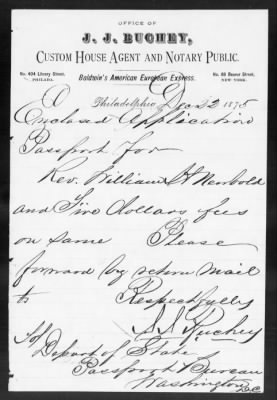 OFFICE OF
J. J. BUCHEY,
CUSTOM HOUSE AGENT AND NOTARY PUBLIC.
No. 404 Library Street,
PHILADA.
No. 88 Beaver Street,
NEW YORK.
Baldwin's American European Express.
Philadelphia Dec 22 1875
Enclosed Application
Passport for
Rev. William A Newbold
and Five dollars fees
on same Please
forward by return mail
to Respectfully
J. J. Buchey
To/
Depart of State
Passport Bureau
Washington
D.C.